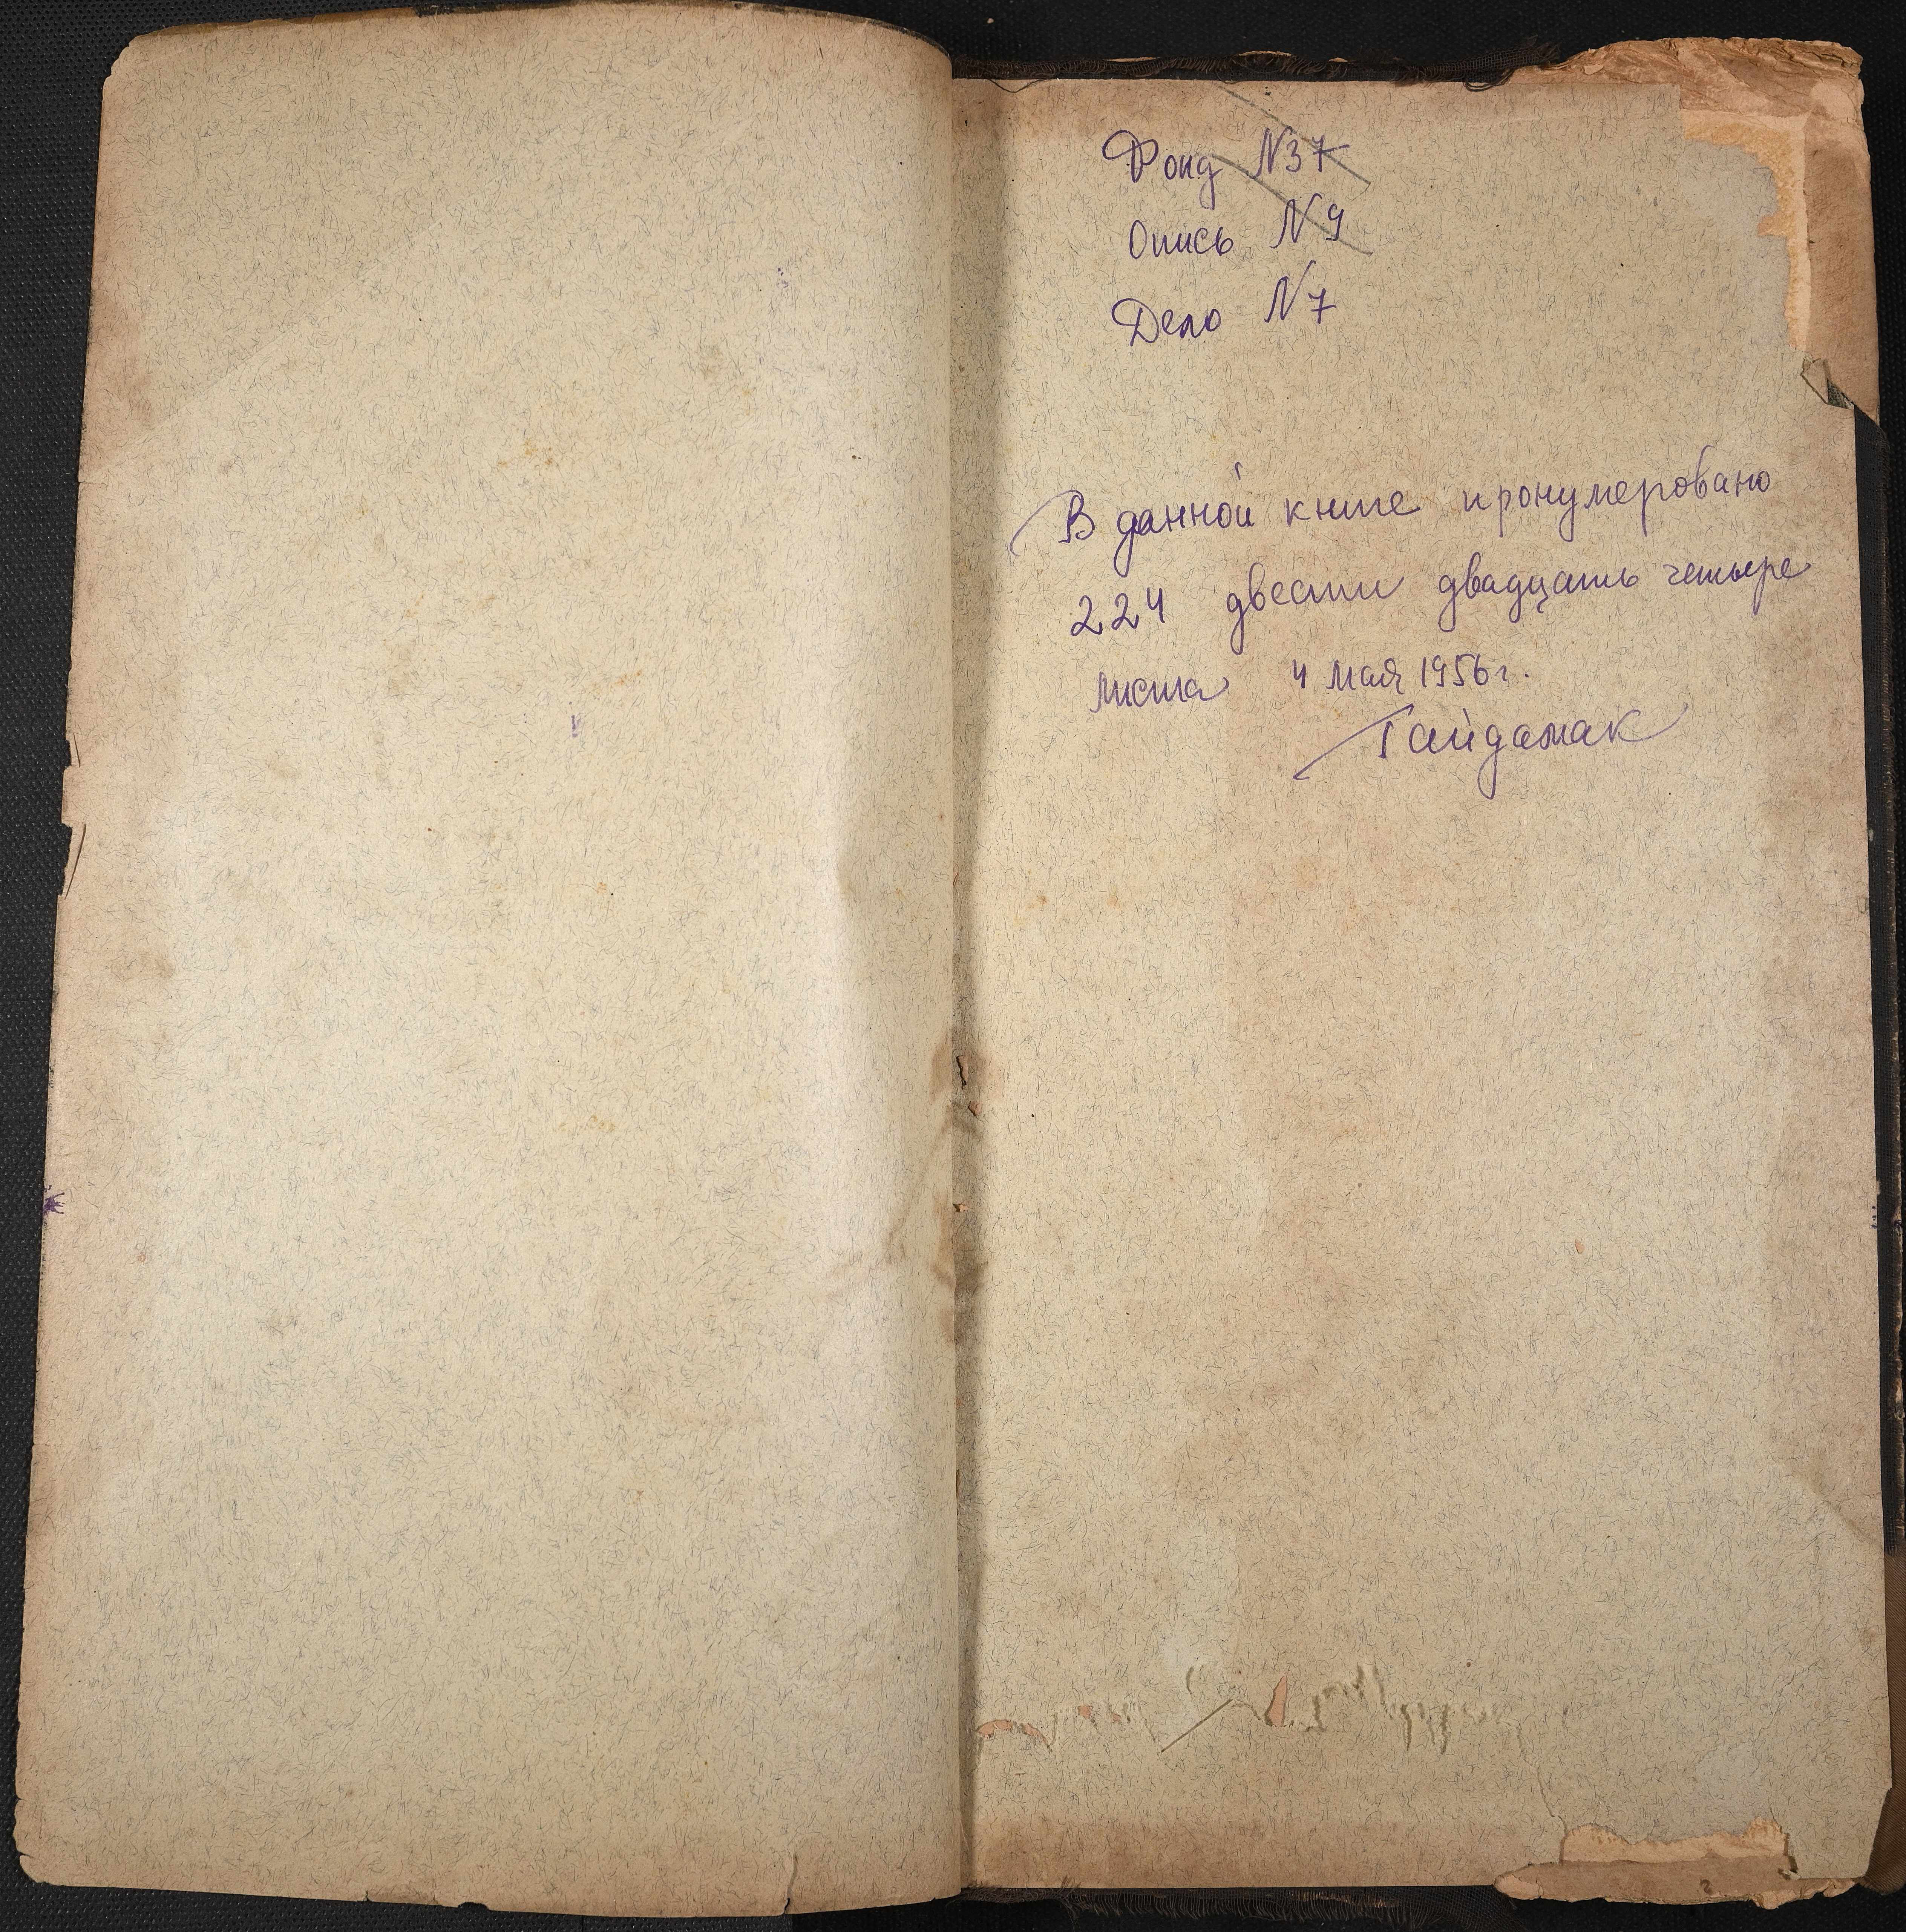 Фонд N37
Опись N9
Дело N7
В данной книге пронумеровано
224 двести двадцать четыре
листа 4 мая 1956г.
Гайдамак